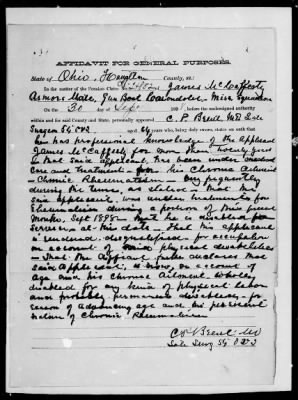 AFFIDAVIT FOR GENERAL PURPOSES.
State of Ohio, County, ss:
In the matter of the Pension Claim No. James McCafferty
Gun Boat Carondelet, Miss Squadron
On the 30 day of Sept 189 before the undersigned authority
within and for said County and State, personally appeared C. P. Brent MD late
Surgeon 54 aged 64 years, who, being duly sworn, states on oath that
he has professional knowledge of the applicant
James McCafferty for more than twenty years
That said applicant has been under medical
care and treatment for his Chronic Ailment
Chronic Rheumatism
during the time, as stated - That
said applicant, was under treatment for
Rheumatism during a portion of this present
Month, Sept That he is disabled for
service, at this date - That this applicant
is for occupation
on account of physical disabilities
- That the Affiant further declares that
said applicant, is now, on account of
age and his Chronic Ailment wholly
disabled for any kind of physical labor
and probably permanently disabled, for
reason of advancing age and the persistent
nature of Chronic Rheumatism
C P Brent MD
Late Surg 54